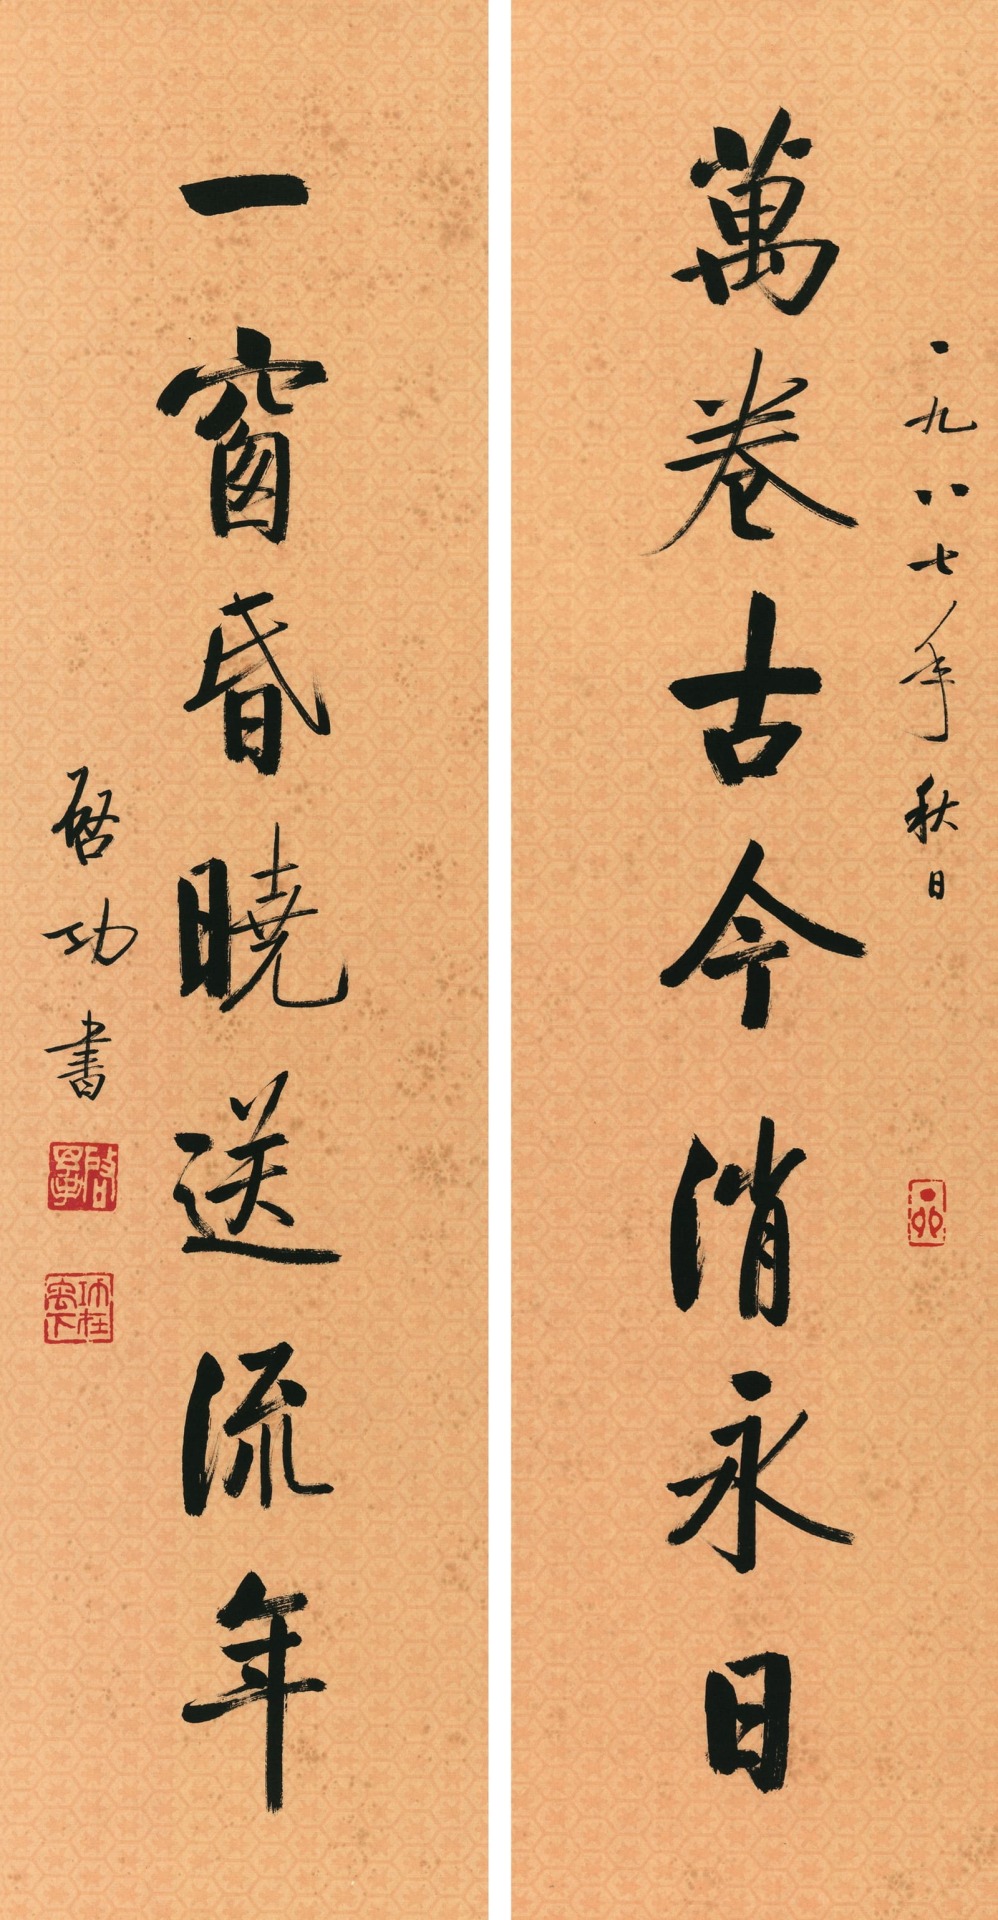 一九八七年秋日
萬卷古今消永日
一窗昏曉送流年
啓功書